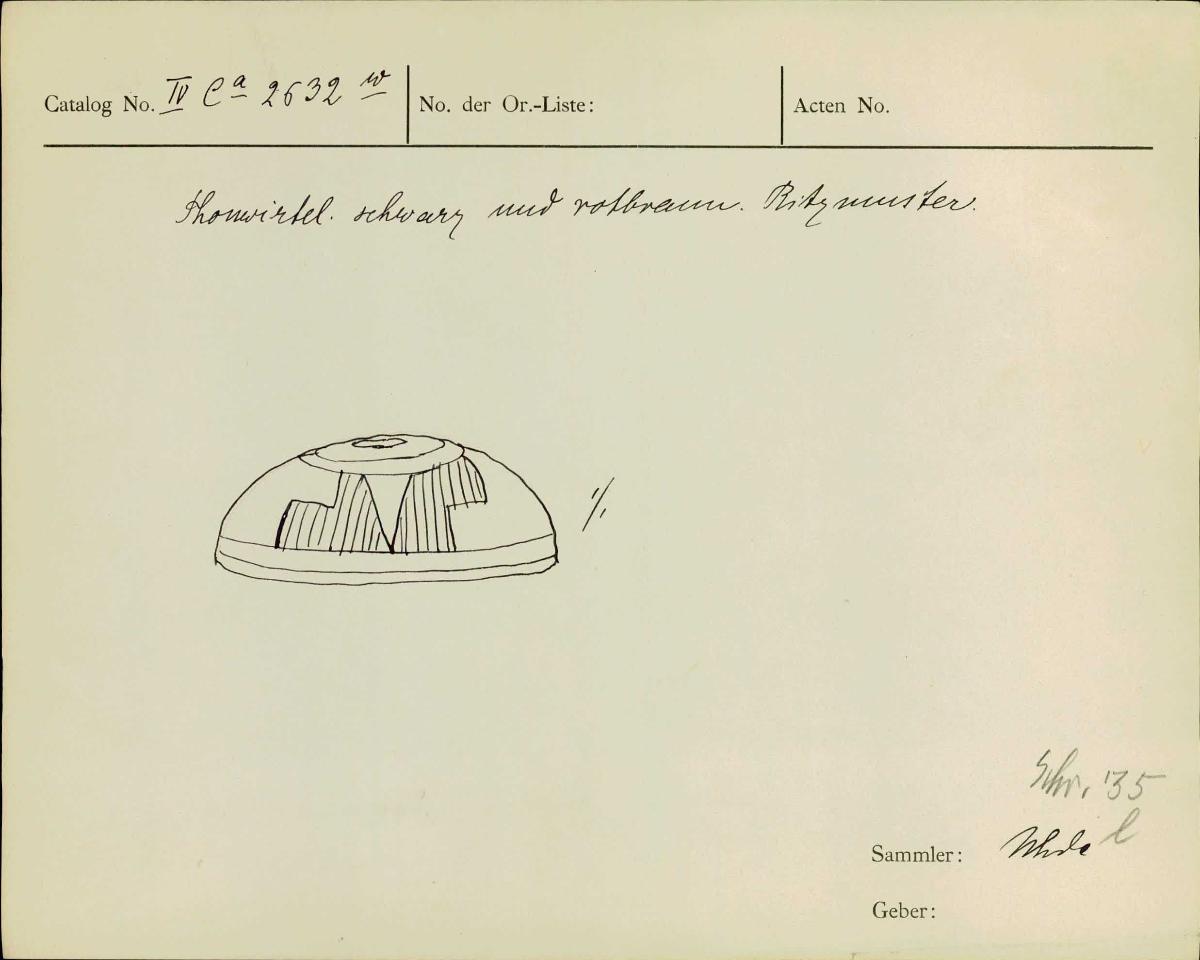 Catalog No. IV Ca 2632 w
No. der Or.-Liste:
Acten No.
Thonwirtel. schwarz und rotbraun. Ritzmuster.
1/1
Schr. 35
l
Sammler: Uhde
Geber: